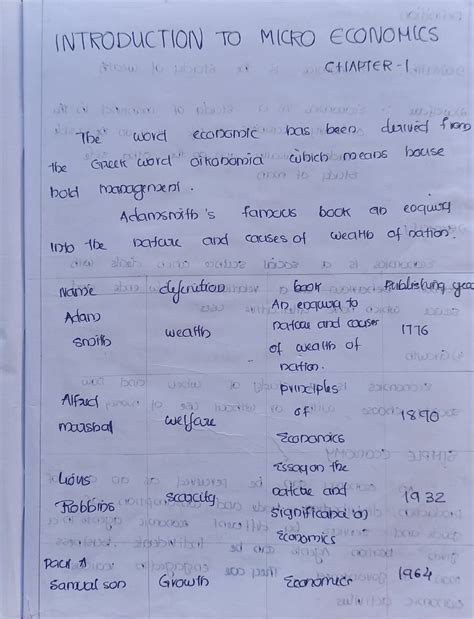 INTRODUCTION TO MICRO ECONOMICS
CHAPTER-1
The word economic has been derived from
the Greek word oikonomia which means house
hold management.
Adamsmith's famous book an enquiry
into the nature and causes of wealth of nation.
Name definition book Publishing year
Adam Smith wealth An enquiry to nature and causes of wealth of nation. 1776
Alfred marshal welfare principles of Economics 1890
Lious Robbins scacity Essay on the nature and significance on Economics 1932
Paul A Samualson Growth Economics 1964